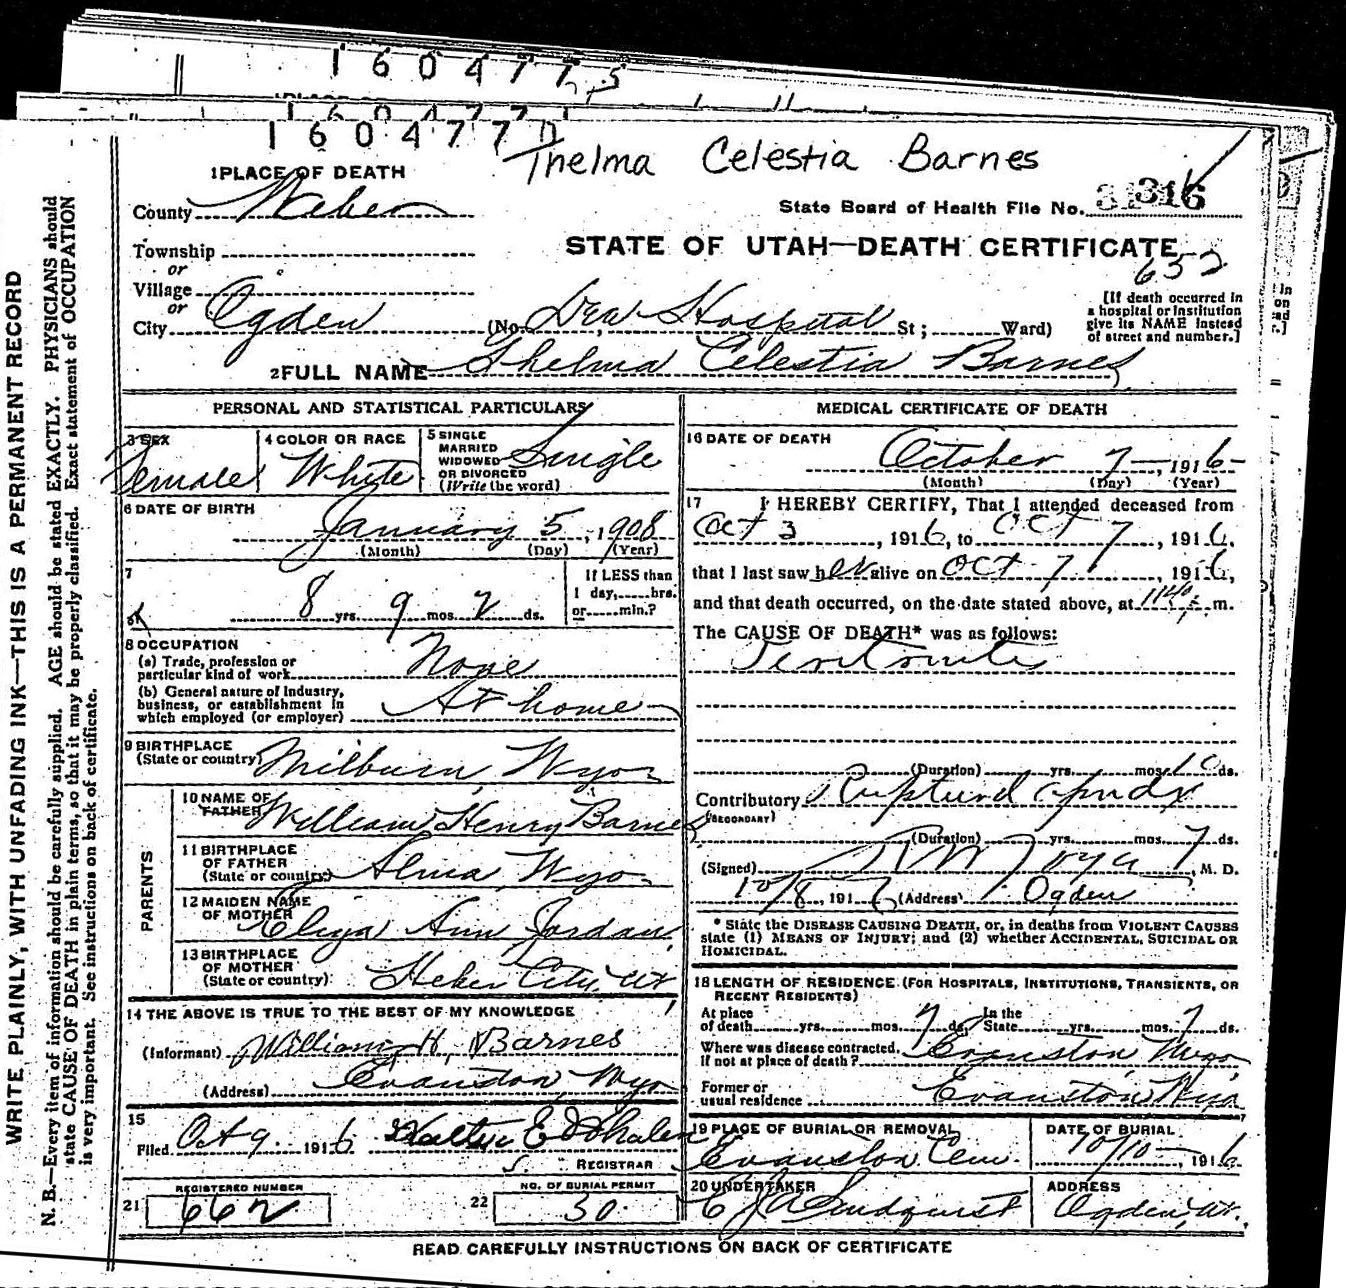 1 6 0 4 7 7 5
1 6 0 4 7 7
1 6 0 4 7 7 0
Thelma Celestia Barnes
1 PLACE OF DEATH
County Weber
State Board of Health File No. 316
Township
STATE OF UTAH—DEATH CERTIFICATE
652
or
Village
or
City Ogden (No. Dea Hospital St; Ward)
[If death occurred in
a hospital or institution
give its NAME instead
of street and number.]
2 FULL NAME Thelma Celestia Barnes
PERSONAL AND STATISTICAL PARTICULARS
3 SEX
Female
4 COLOR OR RACE
White
5 SINGLE
MARRIED
WIDOWED
OR DIVORCED
(Write the word)
Single
6 DATE OF BIRTH
January 5, 1908
(Month) (Day) (Year)
7
8 yrs. 9 mos. 2 ds.
If LESS than
1 day, hrs.
or min.?
8 OCCUPATION
(a) Trade, profession or
particular kind of work None
(b) General nature of Industry,
business, or establishment in
which employed (or employer) At home
9 BIRTHPLACE
(State or country) Milburn, Wyo
PARENTS
10 NAME OF
FATHER William Henry Barnes
11 BIRTHPLACE
OF FATHER
(State or country) Alma, Wyo
12 MAIDEN NAME
OF MOTHER
Eliza Ann Jordan
13 BIRTHPLACE
OF MOTHER
(State or country) Heber City, Ut
14 THE ABOVE IS TRUE TO THE BEST OF MY KNOWLEDGE
(Informant) William H. Barnes
(Address) Evanston, Wyo
15
Filed Oct 9 1916 Whalen
REGISTRAR
21 REGISTERED NUMBER
662
22 NO. OF BURIAL PERMIT
30
MEDICAL CERTIFICATE OF DEATH
16 DATE OF DEATH
October 7 —, 1916
(Month) (Day) (Year)
17 I HEREBY CERTIFY, That I attended deceased from
Oct 3, 1916, to Oct 7, 1916,
that I last saw her alive on Oct 7, 1916,
and that death occurred, on the date stated above, at 1140 m.
The CAUSE OF DEATH* was as follows:
Peritonitis
(Duration) yrs. mos. 10 ds.
Contributory Ruptured apndx
(SECONDARY)
(Duration) yrs. mos. 7 ds.
(Signed) , M. D.
10/8, 1916 (Address) Ogden
* State the DISEASE CAUSING DEATH, or, in deaths from VIOLENT CAUSES
state (1) MEANS OF INJURY; and (2) whether ACCIDENTAL, SUICIDAL OR
HOMICIDAL.
18 LENGTH OF RESIDENCE (FOR HOSPITALS, INSTITUTIONS, TRANSIENTS, OR
RECENT RESIDENTS)
At place
of death yrs. mos. 7 ds.
In the
State yrs. mos. 7 ds.
Where was disease contracted,
if not at place of death? Evanston Wyo
Former or
usual residence Evanston Wyo
19 PLACE OF BURIAL OR REMOVAL
Evanston Cem.
DATE OF BURIAL
10/10 —, 1916
20 UNDERTAKER
Lindquist
ADDRESS
Ogden, Ut.
READ CAREFULLY INSTRUCTIONS ON BACK OF CERTIFICATE
WRITE PLAINLY, WITH UNFADING INK—THIS IS A PERMANENT RECORD
N. B.—Every item of information should be carefully supplied. AGE should be stated EXACTLY. PHYSICIANS should
state CAUSE OF DEATH in plain terms, so that it may be properly classified. Exact statement of OCCUPATION
is very important. See instructions on back of certificate.